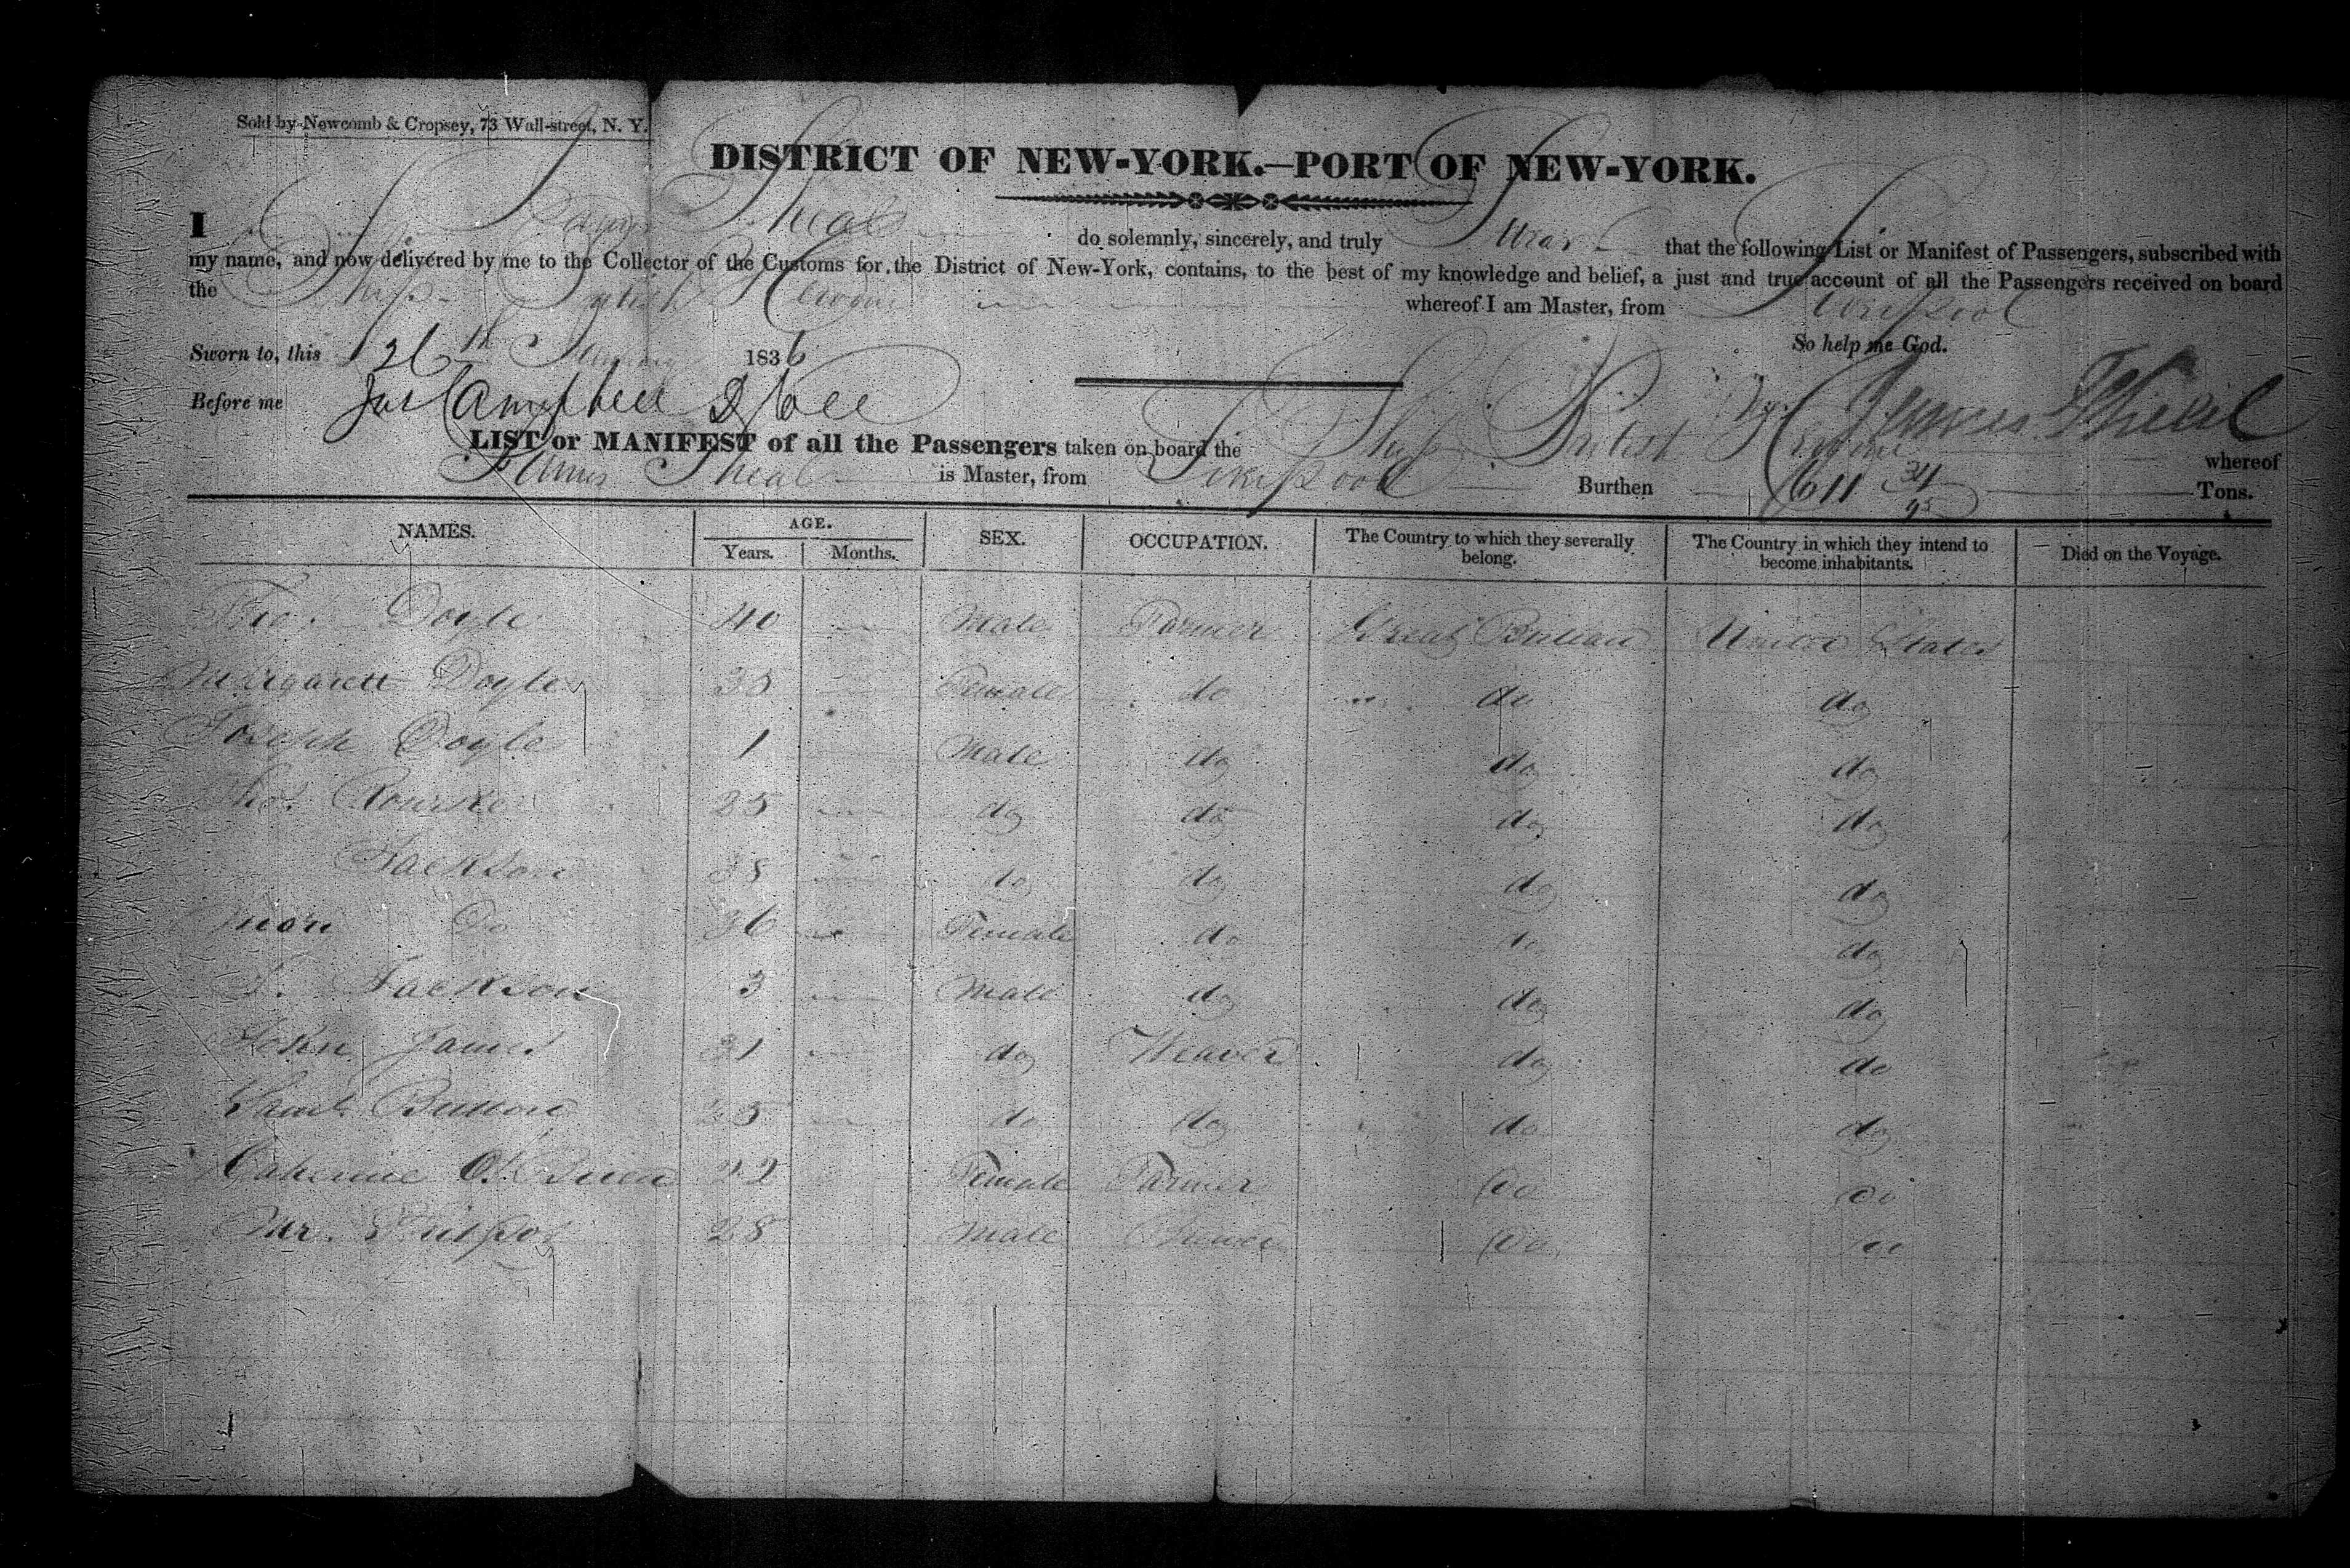 Sold by Newcomb & Cropsey, 73 Wall-street, N. Y.
DISTRICT OF NEW-YORK.—PORT OF NEW-YORK.
I James Theal do solemnly, sincerely, and truly Swear that the following List or Manifest of Passengers, subscribed with
my name, and now delivered by me to the Collector of the Customs for the District of New-York, contains, to the best of my knowledge and belief, a just and true account of all the Passengers received on board
the Ship British whereof I am Master, from Liverpool
Sworn to, this 26th 1836 So help me God.
Before me Jas Campbell James Theal
LIST or MANIFEST of all the Passengers taken on board the Ship British whereof
James Theal is Master, from Liverpool Burthen 611 34/95 Tons.
NAMES. AGE. SEX. OCCUPATION. The Country to which they severally belong. The Country in which they intend to become inhabitants. Died on the Voyage.
Years. Months.
Doyle 40 Male Farmer Great Britain United States
Margarett Doyle 35 Female do do do
Joseph Doyle 1 Male do do do
Thos. Rourke 25 do do do do
Jackson 35 do do do do
Do 36 Female do do do
J. Jackson 3 Male do do do
John James 31 do Weaver do do
Saml. 25 do do do do
Catherine O'Brien 22 Female Farmer Do Do
Mr. 28 Male Do Do